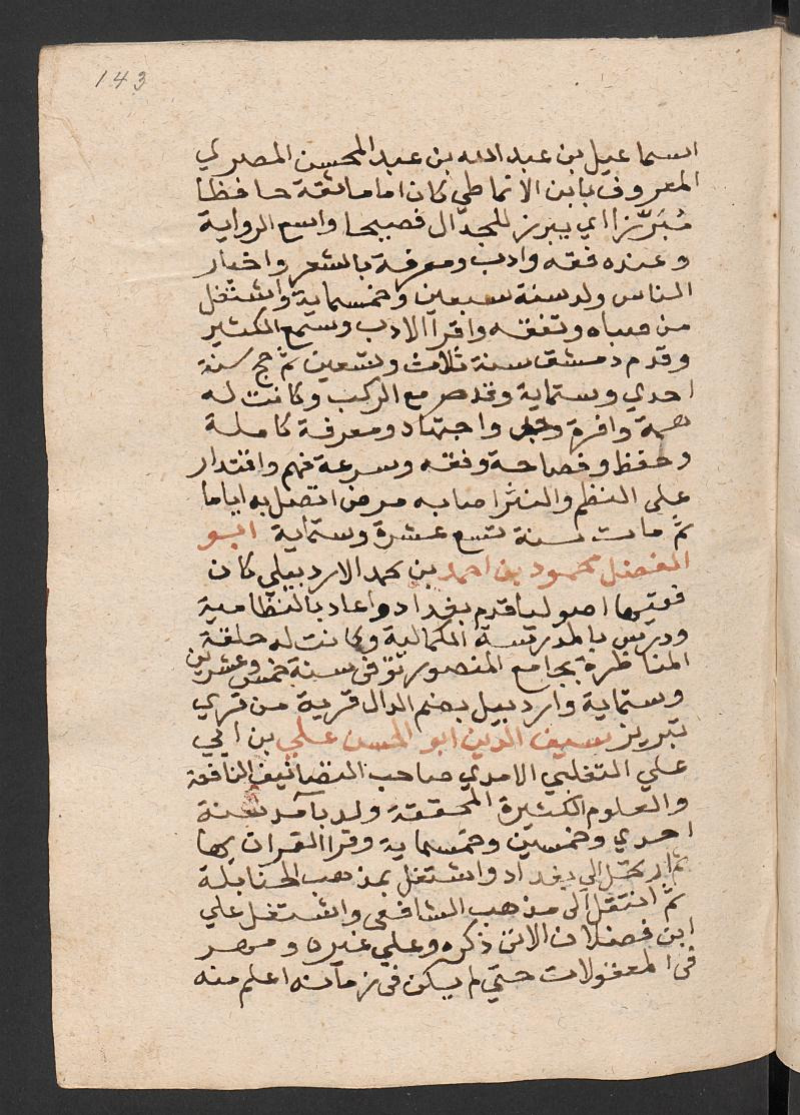 143
اسماعيل بن عبد الله بن عبد المحسن المصري
المعروف بابن الانماطي كان اماما ثقة حافظا
مُبَرّزا اي يبرز للجدال فصيحا واسع الرواية
وعنده فقه وادب ومعرفة بالشعر واخبار
الناس ولد سنة سبعين وخمسماية واشتغل
من صباه وتفقه واقرا الادب وسمع الكثير
وقدم دمشق سنة ثلاث وتسعين ثم حج سنة
احدي وستماية وقدم مع الركب وكانت له
همة وافرة واجتهاد ومعرفة كاملة
وحفظ وفصاحة وفقه وسرعة فهم واقتدار
علي النظم والنثر اصابه مرض اتصل به اياما
ثم مات سنة تسع عشرة وستماية ابو
الفضل محمود بن احمد بن محمد الاردبيلي كان
فقيها اصوليا قدم بغداد واعاد بالنظامية
ودرس بالمدرسة الكمالية وكانت له حلقة
المناظرة بجامع المنصور توفي سنة خمس وعشرين
وستماية واردبيل بضم الدال قرية من قري
تبريز سيف الدين ابو الحسن علي بن ابي
علي التغلبي الامدي صاحب التصانيف النافعة
والعلوم الكثيرة المحققة ولد بآمد سنة
احدي وخمسين وخمسماية وقرا القران بها
ثم ارتحل الي بغداد واشتغل بمذهب الحنابلة
ثم انتقل الي مذهب الشافعي واشتغل علي
ابن فضلان الاتي ذكره وعلي غيره ومهر
في المعقولات حتي لم يكن في زمانه اعلم منه